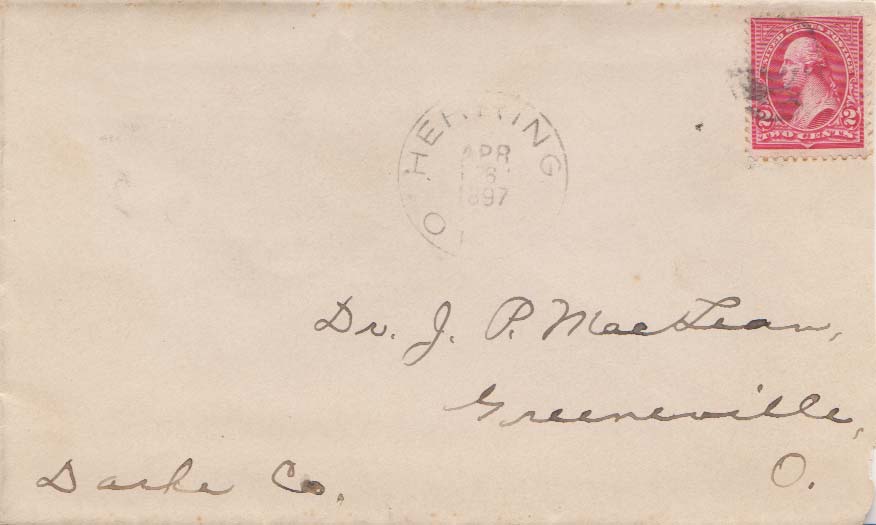 UNITED STATES POSTAGE
2 2
TWO CENTS
HERRING
APR
6
1897
O
Dr. J. P. MacLean,
Greeneville,
O.
Darke Co.